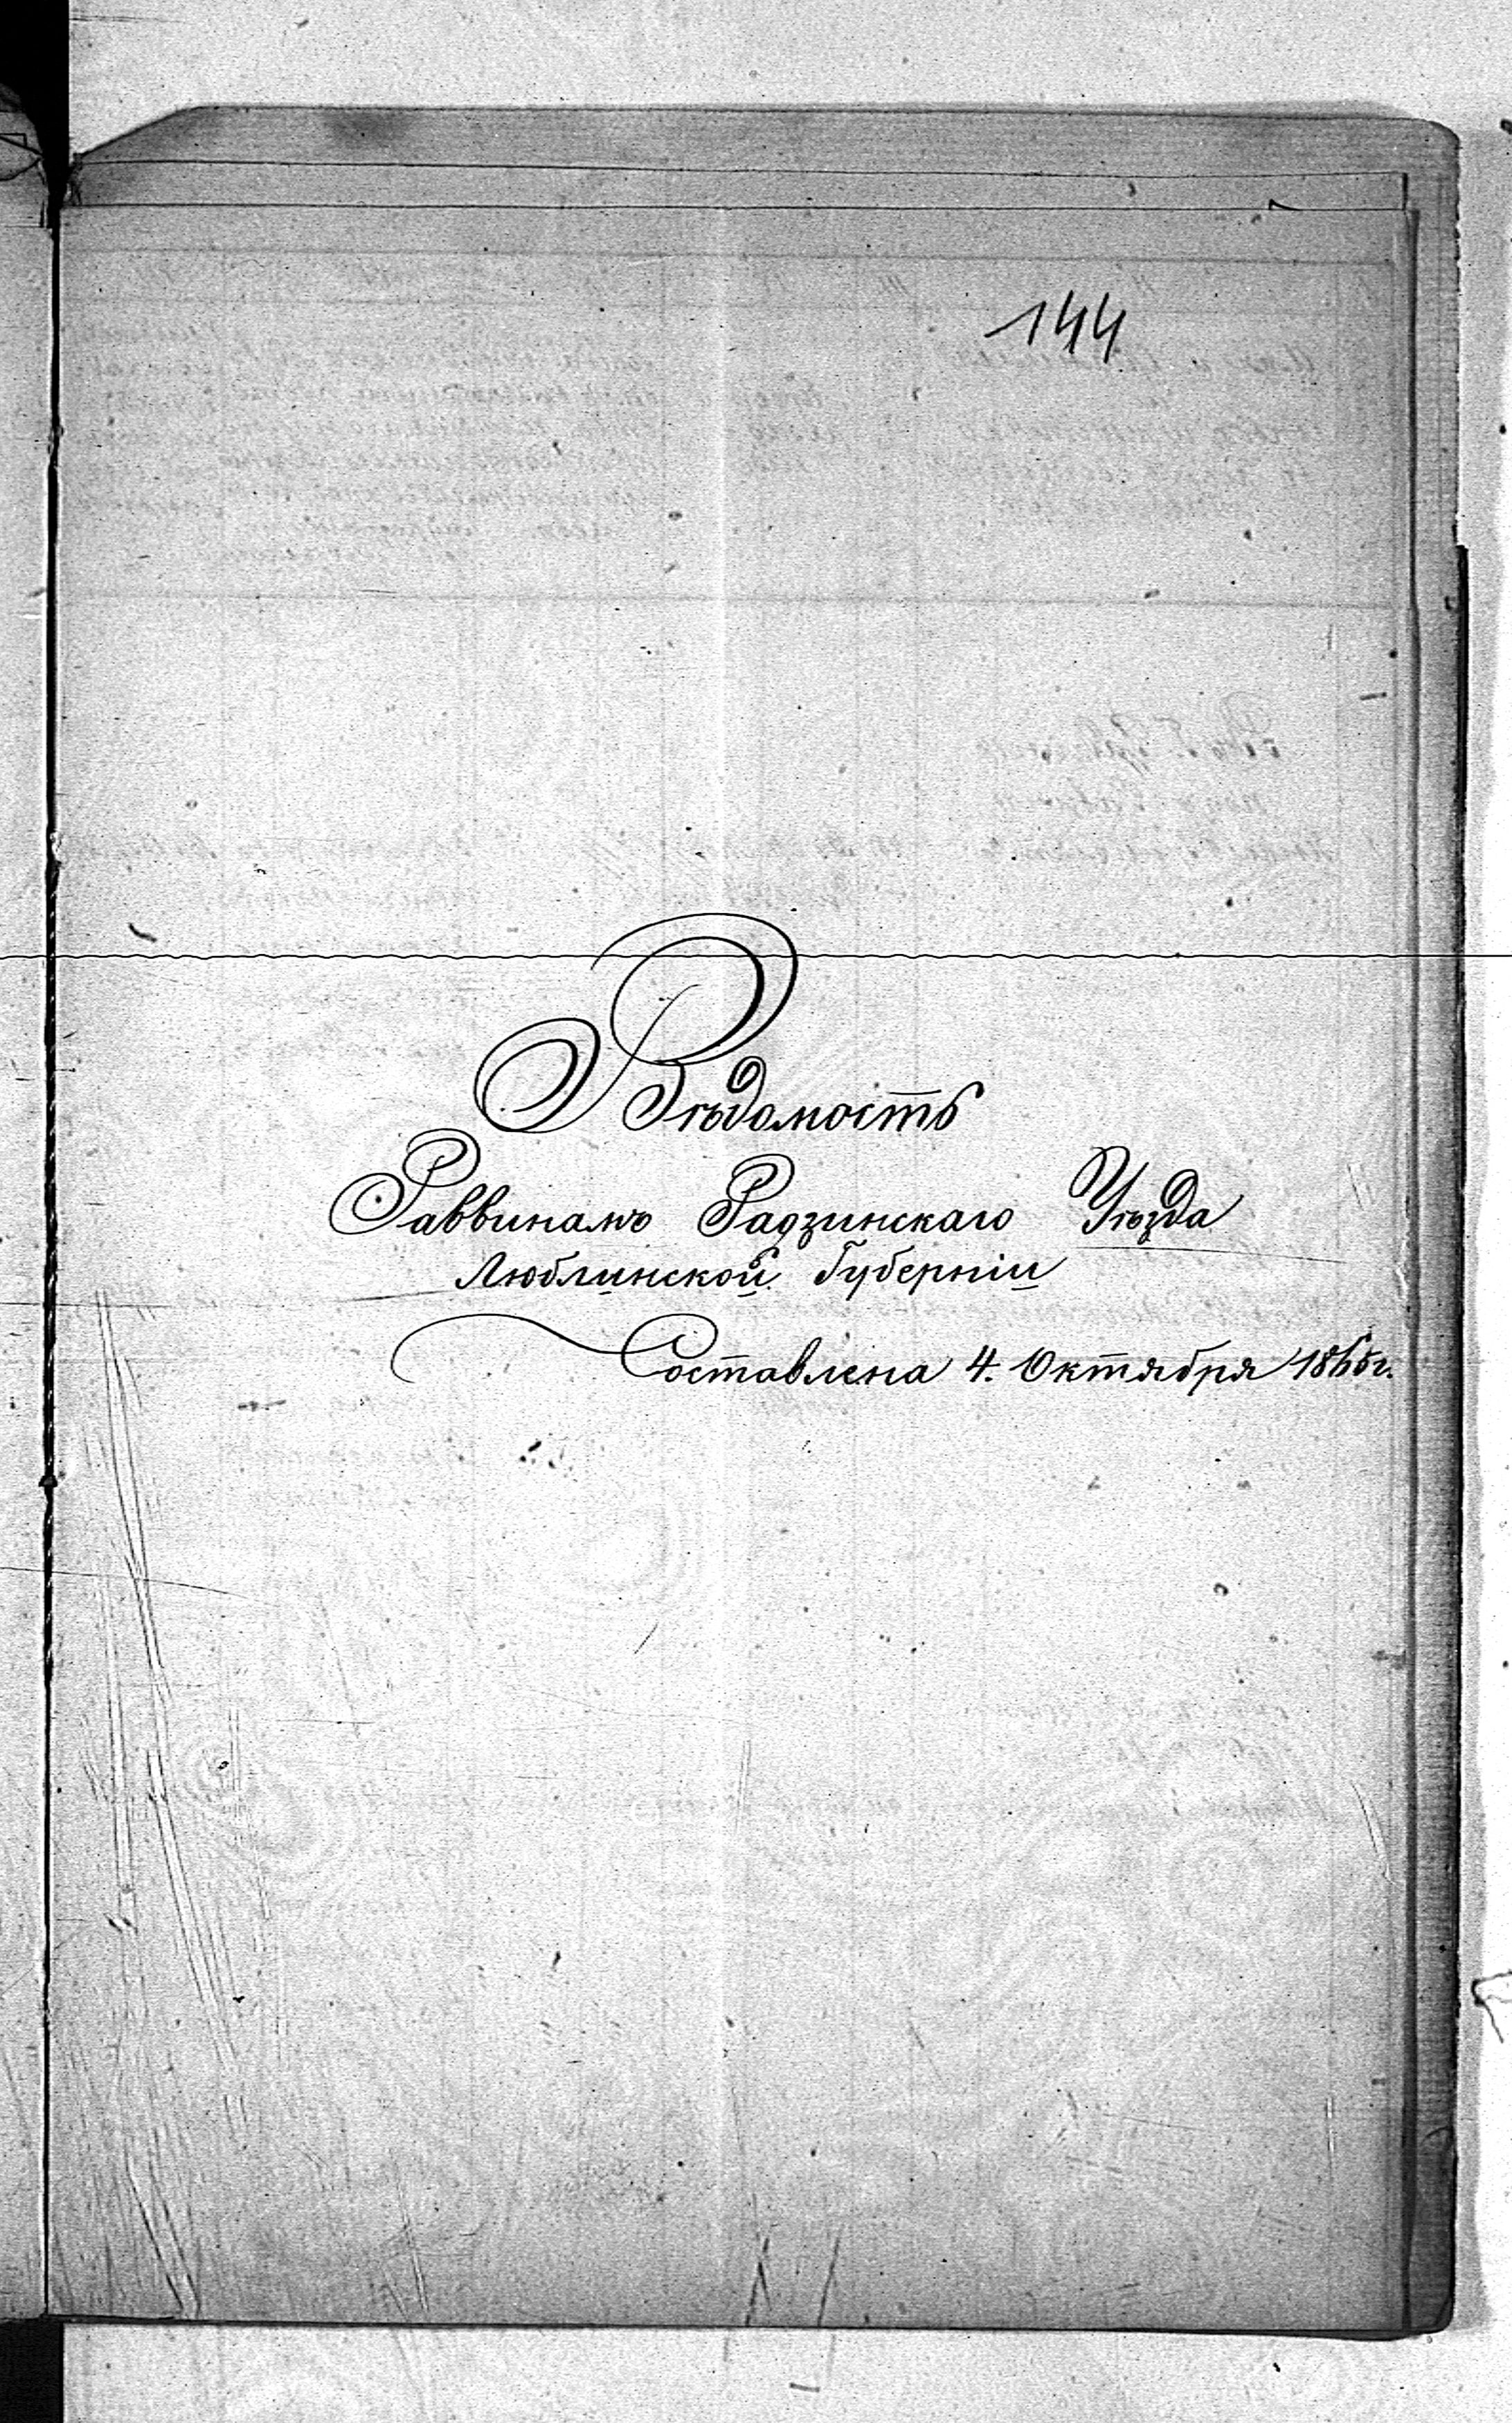 144
Вѣдомость
Раввинамъ Радзинскаго Уѣзда
Люблинской Губерніи
Составлена 4. Октября г.